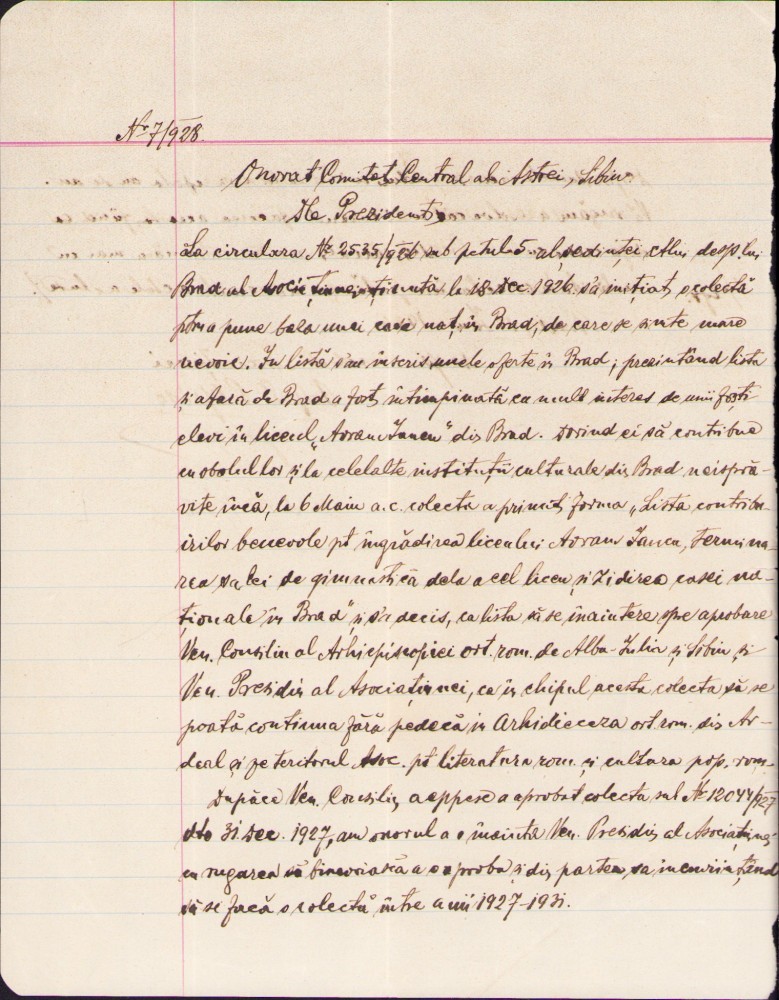 Nr 7/928.
Onorat Comitet Central al Astrei, Sibiu.
Dle Prezident,
La circulara Nr 2535/926 sub petul 5. al ședinței ctlui desp.lui
Brad al Asociațiunei ținută la 18 Dec. 1926 s'a inițiat o colectă
ptru a pune baza unei case naț. în Brad, de care se sinte mare
nevoie. În listă s'au înscris unele oferte în Brad; prezintând lista
și afară de Brad a fost întimpinată cu mult interes de unii foști
elevi în liceul „Avram Iancu" din Brad. Dorind ei să contribue
cu obolul lor și la celelalte instituții culturale din Brad neisprǎ-
vite încă, la 6 Maiu a.c. colecta a primit forma „Lista contribu-
irilor benevole pt îngrădirea liceului Avram Iancu, termina-
rea salei de gimnastică dela acel liceu și zidirea casei na-
ționale în Brad" și s'a decis, ca lista să se înaintere spre aprobare
Ven. Consiliu al Arhiepiscopiei ort. rom. de Alba-Iulia și Sibiu și
Ven. Presidiu al Asociațiunei, ca în chipul acesta colecta să se
poată continua fără pedecă in Arhidieceza ort. rom. din Ar-
deal și pe teritorul Asoc. pt literatura rom. și cultura pop. rom.
Dupăce Ven. Consiliu a aprobat colecta sub Nr 12044/927
dto 31. Dec. 1927, am onorul a o înainta Ven. Presidiu al Asociațiunei
cu rugarea să binevoiască a o aproba și din partea sa
să se facă o colectă între anii 1927-1931.